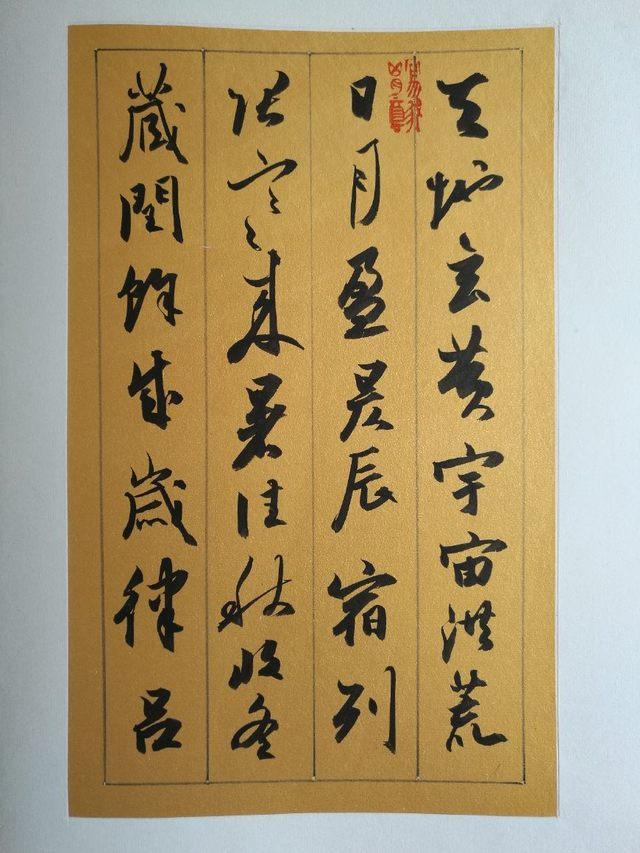 天地玄黄宇宙洪荒
日月盈昃辰宿列
张寒来暑往秋收冬
藏閏餘成歲律吕